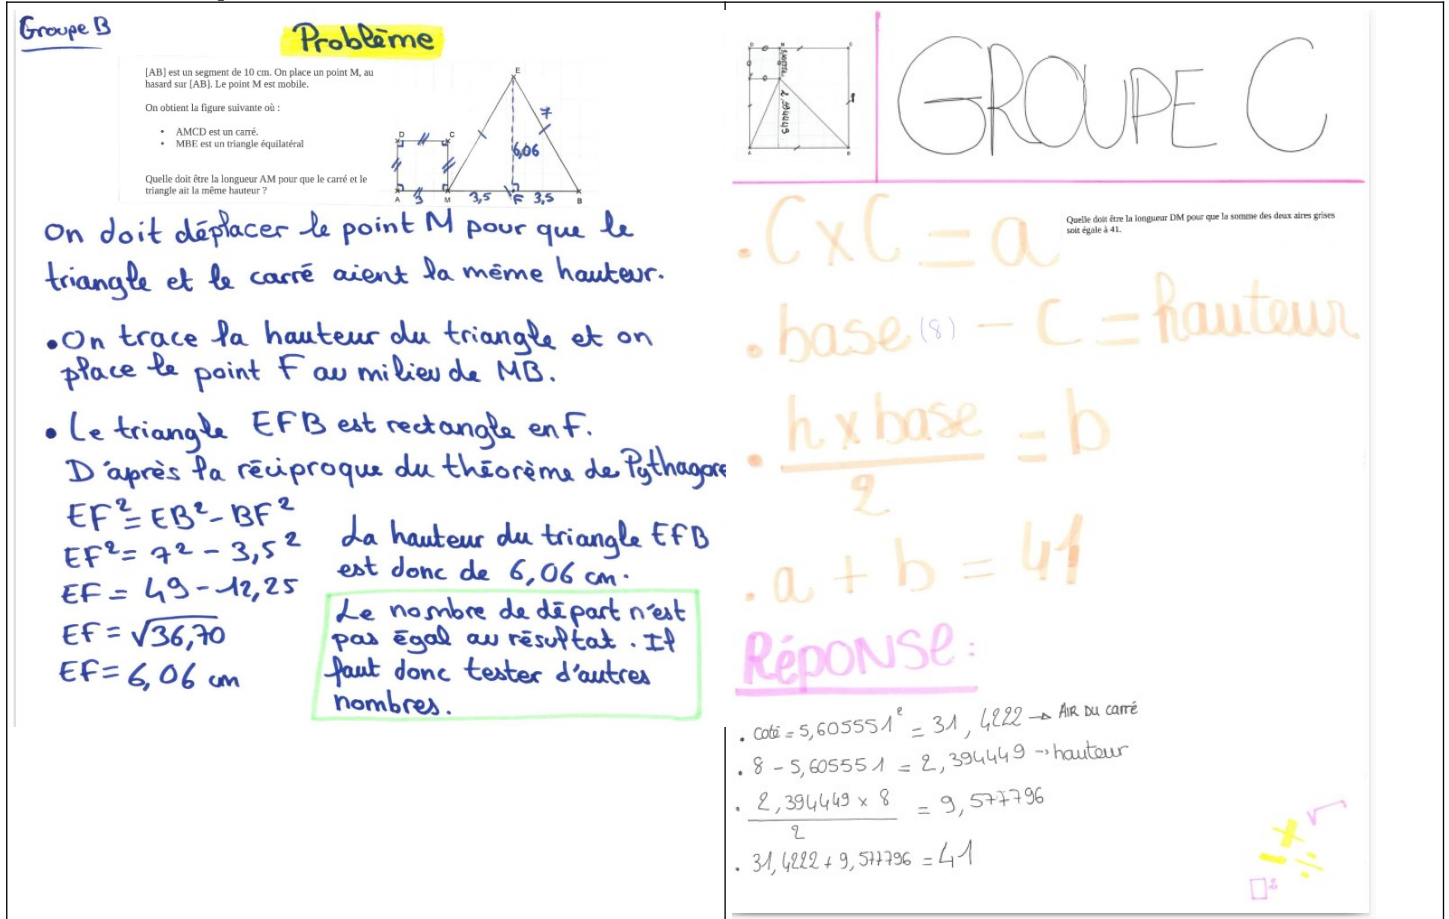 Groupe B
Problème
[AB] est un segment de 10 cm. On place un point M, au
hasard sur [AB]. Le point M est mobile.
On obtient la figure suivante où :
• AMCD est un carré.
• MBE est un triangle équilatéral
Quelle doit être la longueur AM pour que le carré et le
triangle ait la même hauteur ?
E
7
D
C
6,06
A
3
M
3,5
F
3,5
B
On doit déplacer le point M pour que le
triangle et le carré aient la même hauteur.
• On trace la hauteur du triangle et on
place le point F au milieu de MB.
• Le triangle EFB est rectangle en F.
D'après la réciproque du théorème de Pythagore
EF² = EB² - BF²
EF² = 7² - 3,5²
EF = 49 - 12,25
EF = √36,70
EF = 6,06 cm
La hauteur du triangle EFB
est donc de 6,06 cm.
Le nombre de départ n'est
pas égal au résultat. Il
faut donc tester d'autres
nombres.
GROUPE C
Quelle doit être la longueur DM pour que la somme des deux aires grises
soit égale à 41.
• C x C = a
• base (8) - C = hauteur
• h x base
2
= b
• a + b = 41
RÉPONSE :
• coté = 5,605551² = 31,4222 → AIR DU carré
• 8 - 5,605551 = 2,394449 → hauteur
• 2,394449 x 8
2
= 9,577796
• 31,4222 + 9,577796 = 41
+
√
-
÷
□²